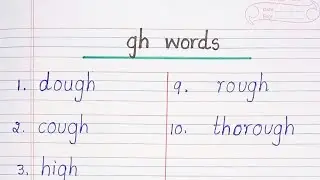 gh words
1. dough
2. cough
3. high
9. rough
10. thorough